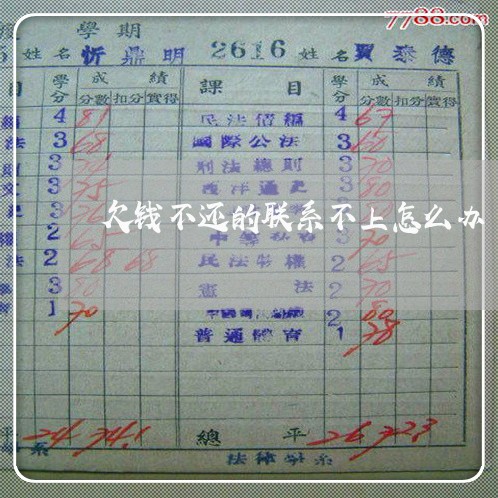 7788.com
學期
姓名 忻鼎明 2616 姓名 賈泰德
目 學分 成績 課目 學分 成績
分數 扣分 實得 分數 扣分 實得
4 81 民法債編 4 67
法 3 68 國際公法 3 60
3 刑法總則 3 70
3 75 西洋通史 3 80
欠钱不还的联系不上怎么办
2 3 70
法 2 68 68 民法物權 2 65
3 80 憲法 2 70
1 70 2 80
普通體育 1 78
平 24 74.1 總平 26 72.3
系 法律學系